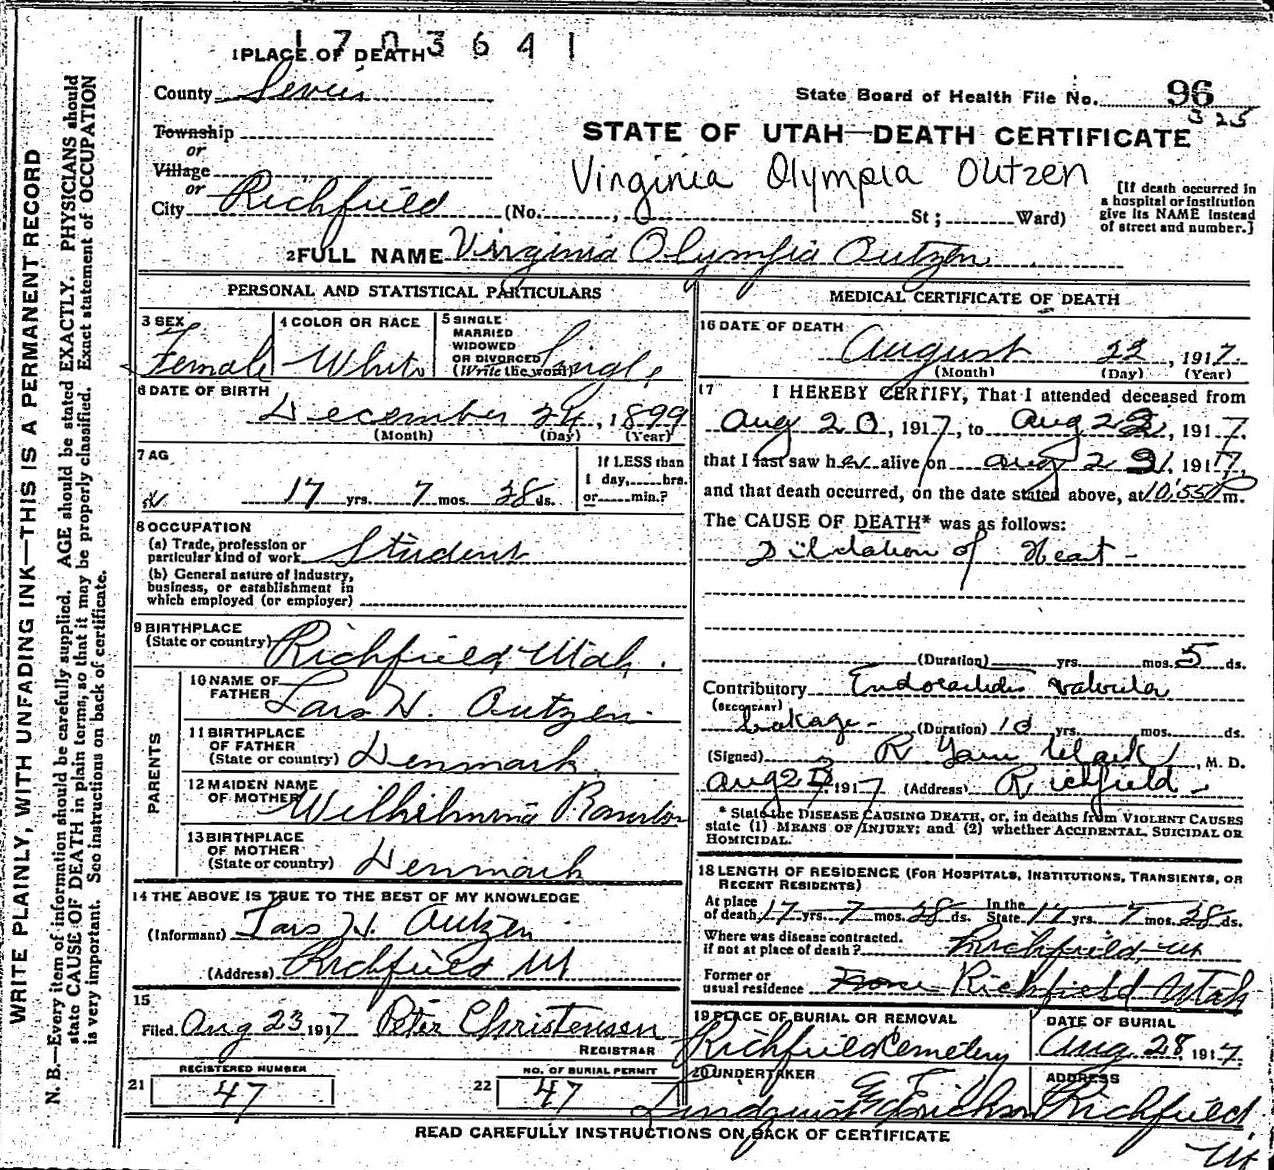 1703641
1 PLACE OF DEATH
County Sevier
State Board of Health File No. 96
325
Township
or
Village
or
City Richfield (No. , St; Ward)
STATE OF UTAH—DEATH CERTIFICATE
Virginia Olympia Outzen
[If death occurred in
a hospital or institution
give its NAME instead
of street and number.]
2 FULL NAME Virginia Olympia Outzen
PERSONAL AND STATISTICAL PARTICULARS
3 SEX
Female
4 COLOR OR RACE
White
5 SINGLE
MARRIED
WIDOWED
OR DIVORCED
(Write the word) Single
6 DATE OF BIRTH
December 24, 1899
(Month) (Day) (Year)
7 AG
17 yrs. 7 mos. 28 ds.
If LESS than
1 day, hrs.
or min.?
8 OCCUPATION
(a) Trade, profession or
particular kind of work Student
(b) General nature of industry,
business, or establishment in
which employed (or employer)
9 BIRTHPLACE
(State or country) Richfield Utah.
PARENTS
10 NAME OF
FATHER Lars H. Outzen
11 BIRTHPLACE
OF FATHER
(State or country) Denmark.
12 MAIDEN NAME
OF MOTHER Wilhilmina
13 BIRTHPLACE
OF MOTHER
(State or country) Denmark
14 THE ABOVE IS TRUE TO THE BEST OF MY KNOWLEDGE
(Informant) Lars H. Outzen
(Address) Richfield Ut
15
Filed Aug 23 1917 Peter Christensen
REGISTRAR
21 REGISTERED NUMBER
47
22 NO. OF BURIAL PERMIT
47
MEDICAL CERTIFICATE OF DEATH
16 DATE OF DEATH
August 22, 1917.
(Month) (Day) (Year)
17 I HEREBY CERTIFY, That I attended deceased from
Aug 20, 1917, to Aug 22, 1917.
that I last saw her alive on Aug 21, 1917,
and that death occurred, on the date stated above, at 10:55 P m.
The CAUSE OF DEATH* was as follows:
Dilatation of Heart -
(Duration) yrs. mos. 5 ds.
Contributory Endocarditis valvular
(SECONDARY)
leakage - (Duration) 10 yrs. mos. ds.
(Signed) R , M. D.
Aug 23, 1917 (Address) Richfield -
* State the DISEASE CAUSING DEATH, or, in deaths from VIOLENT CAUSES
state (1) MEANS OF INJURY; and (2) whether ACCIDENTAL, SUICIDAL OR
HOMICIDAL.
18 LENGTH OF RESIDENCE (FOR HOSPITALS, INSTITUTIONS, TRANSIENTS, OR
RECENT RESIDENTS)
At place In the
of death 17 yrs. 7 mos. 28 ds. State 17 yrs. 7 mos. 28 ds.
Where was disease contracted.
if not at place of death? Richfield, Ut
Former or
usual residence Richfield Utah
19 PLACE OF BURIAL OR REMOVAL
Richfield Cemetery
DATE OF BURIAL
Aug. 28, 1917.
20 UNDERTAKER
Lindquist & Erickson
ADDRESS
Richfield,
Ut
READ CAREFULLY INSTRUCTIONS ON BACK OF CERTIFICATE
WRITE PLAINLY, WITH UNFADING INK—THIS IS A PERMANENT RECORD
N. B.—Every item of information should be carefully supplied. AGE should be stated EXACTLY. PHYSICIANS should
state CAUSE OF DEATH in plain terms, so that it may be properly classified. Exact statement of OCCUPATION
is very important. See instructions on back of certificate.